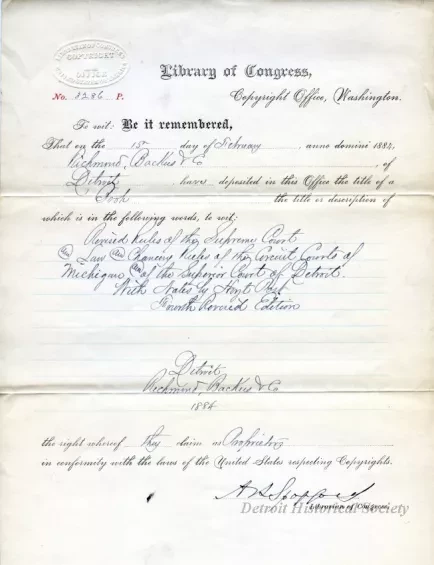 COPYRIGHT
OFFICE
Library of Congress,
No. 8286 P.
Copyright Office, Washington.
To wit: Be it remembered,
That on the 15 day of February anno domini 1884,
Richmond, Backus & Co , of
Detroit have deposited in this Office the title of a
Book the title or description of
which is in the following words, to wit:
Revised Rules of the Supreme Court
Law Chancery Rules of the Circuit Courts of
Michigan of the Superior Court of Detroit.
With Notes by Hoyt Post
Fourth Revised Edition
Detroit
Richmond, Backus & Co
1884
the right whereof they claim as Proprietors
in conformity with the laws of the United States respecting Copyrights.
A R Spofford
Librarian of Congress.
Detroit Historical Society